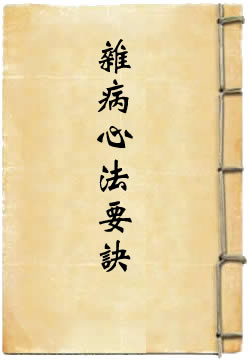 雜病心法要訣